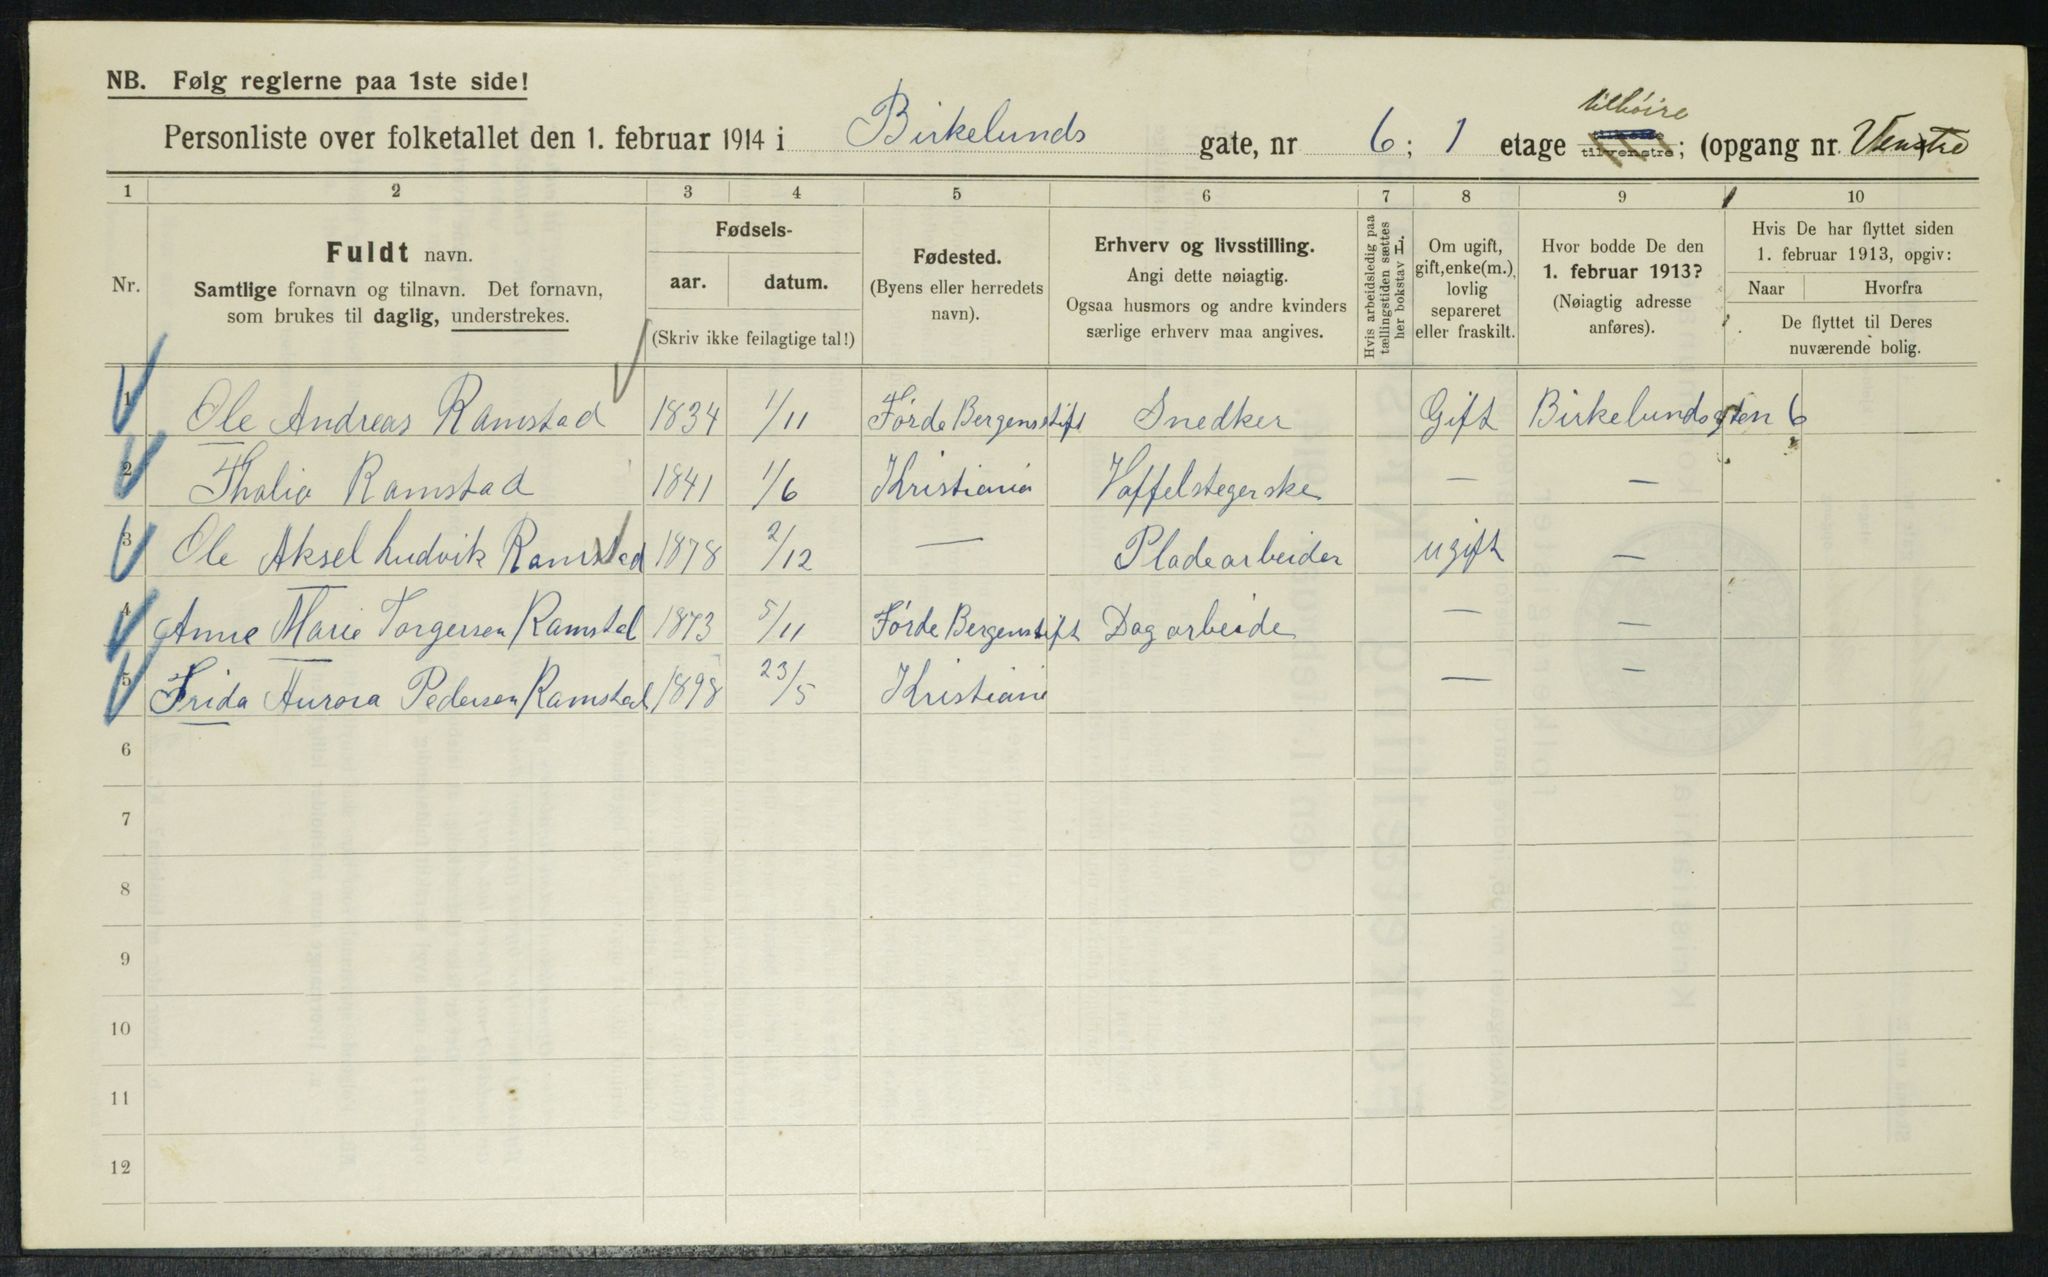 NB. Følg reglerne paa 1ste side!
tilhøire
Personliste over folketallet den 1. februar 1914 i Birkelunds gate, nr 6; 1 etage tilvenstre; (opgang nr. Venstre
1 2 3 4 5 6 7 8 9 10
Nr.
Fuldt navn.
Samtlige fornavn og tilnavn. Det fornavn,
som brukes til daglig, understrekes.
Fødsels-
aar. datum.
(Skriv ikke feilagtige tal!)
Fødested.
(Byens eller herredets
navn).
Erhverv og livsstilling.
Angi dette nøiagtig.
Ogsaa husmors og andre kvinders
særlige erhverv maa angives.
Hvis arbeidsledig paa
tællingstiden sættes
her bokstav H.
Om ugift,
gift, enke(m.),
lovlig
separeret
eller fraskilt.
Hvor bodde De den
1. februar 1913?
(Nøiagtig adresse
anføres).
Hvis De har flyttet siden
1. februar 1913, opgiv:
Naar Hvorfra
De flyttet til Deres
nuværende bolig.
1 Ole Andreas Ramstad 1834 1/11 Førde Bergensstift Snedker Gift Birkelundsgten 6
2 Thalia Ramstad 1841 1/6 Kristiania Vaffelstegerske — —
3 Ole Aksel Ludvik Ramstad 1878 2/12 — Pladearbeider ugift —
4 Anne Marie Torgersen Ramstad 1873 5/11 Førde Bergenstift Dagarbeide — —
5 Frida Aurora Pedersen Ramstad 1898 23/5 Kristiania — —
6
7
8
9
10
11
12